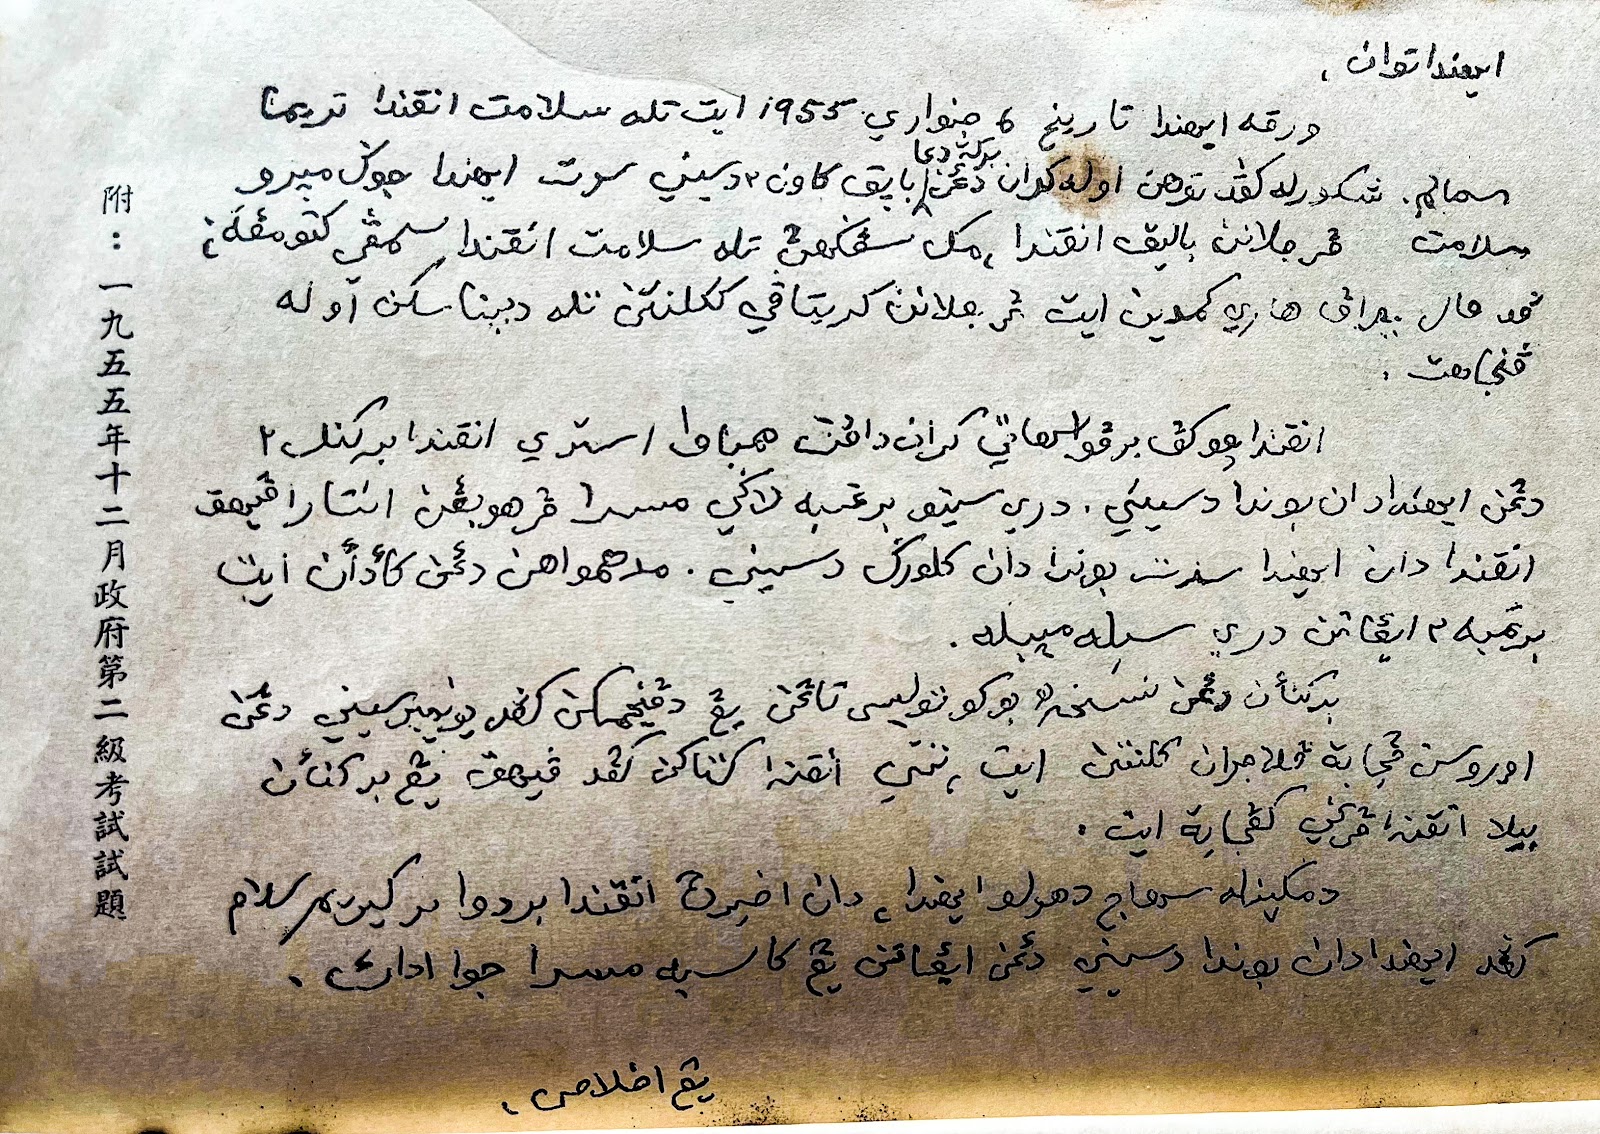 ايهندا توان،
ورقه ايهندا تاريخ 6 جنواري 1955 ايت تله سلامت انقندا تريما
سمالم. شكورله كڤد توهن اوله كران دڠن بركة دعا باپق كاون٢ دسيني سرت ايهندا جوݢ
سلامت ڤرجلانن باليق انقندا، مك تله سلامت انقندا سمڤي
ڤد حال ببراڤ هاري كمدين ايت ڤرجلانن كريتاڤي ككلنتن تله دبيناسكن اوله
ڤنجاهت.
انقندا چوكڤ برڤواس هاتي كران داڤت ممباوا استري انقندا بركنل٢
دڠن ايهندا دان بوندا دسيني. دري سيتو برتمبه لاݢي مسرا ڤرهوبوڠن انتارا ڤيهق
انقندا دان ايهندا سرت بوندا دان كلورݢ دسيني. مدهمواهن دڠن كأدأن ايت
برتمبه٢ ايڠاتن دري سبله مپبله.
بركنأن دڠن نسخه٢ بوكو توليسن تاڠن يڠ دڤينجمكن كڤد يونيبرسيتي دڠن
اوروسن ڤجابة ڤلاجران كلنتن ايت، ننتي انقندا كتاكن كڤد ڤيهق يڠ بركنأن
بيلا انقندا ڤرݢي كڤجابة ايت.
دمكينله سهاج دهولو ايهندا، دان اخيرڽ انقندا بردوا بركيريم سلام
كڤد ايهندا دان بوندا دسيني دڠن ايڠاتن يڠ كاسيه مسرا جوا اداڽ.
يڠ اخلاص،
附：一九五五年十二月政府第二級考試試題